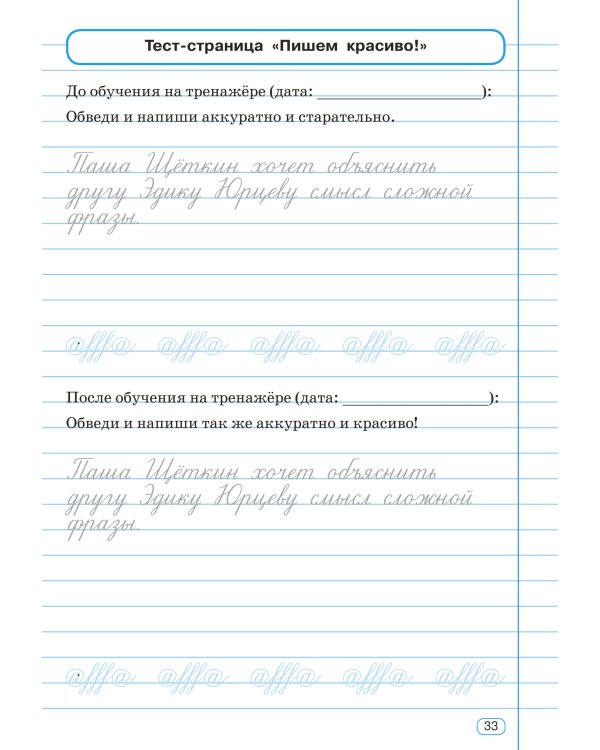 Тест-страница «Пишем красиво!»
До обучения на тренажёре (дата: ____________________):
Обведи и напиши аккуратно и старательно.
Паша Щёткин хочет объяснить
другу Эдику Юрцеву смысл сложной
фразы.
После обучения на тренажёре (дата: __________________):
Обведи и напиши так же аккуратно и красиво!
Паша Щёткин хочет объяснить
другу Эдику Юрцеву смысл сложной
фразы.
33